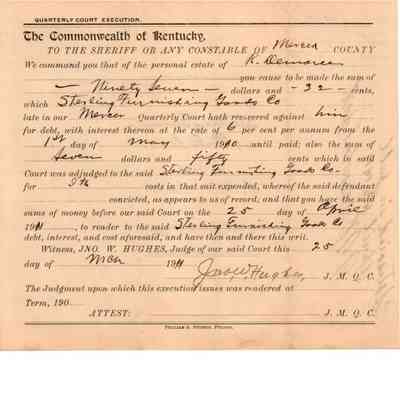 QUARTERLY COURT EXECUTION.
The Commonwealth of Kentucky,
TO THE SHERIFF OR ANY CONSTABLE OF Mercer COUNTY
We command you that of the personal estate of R. Demaree
you cause to be made the sum of
— Ninety Seven — dollars and - 32 - cents,
which Sterling Furnishing Goods Co
late in our Mercer Quarterly Court hath recovered against him
for debt, with interest thereon at the rate of 6 per cent per annum from the
1st day of May 1910 until paid; also the sum of
Seven dollars and fifty cents which in said
Court was adjudged to the said Sterling Furnishing Goods Co-
for Its costs in that suit expended, whereof the said defendant
convicted, as appears to us of record; and that you have the said
sums of money before our said Court on the 25 day of April
1911, to render to the said Sterling Furnishing Goods Co
debt, interest, and cost aforesaid, and have then and there this writ.
Witness, JNO. W. HUGHES, Judge of our said Court this 25
day of Mch 1911
Jno W. Hughes J. M. Q. C.
The Judgment upon which this execution issues was rendered at
Term, 190
ATTEST: J. M. Q. C.